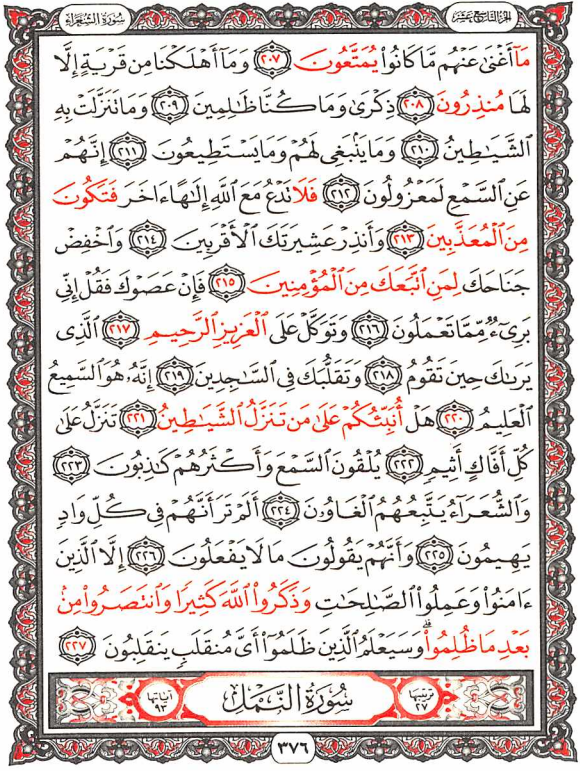 الجزء التاسع عشر
سورة الشعراء
مَآ أَغْنَىٰ عَنْهُم مَّا كَانُوا۟ يُمَتَّعُونَ ٢٠٧ وَمَآ أَهْلَكْنَا مِن قَرْيَةٍ إِلَّا
لَهَا مُنذِرُونَ ٢٠٨ ذِكْرَىٰ وَمَا كُنَّا ظَـٰلِمِينَ ٢٠٩ وَمَا تَنَزَّلَتْ بِهِ
ٱلشَّيَـٰطِينُ ٢١٠ وَمَا يَنۢبَغِى لَهُمْ وَمَا يَسْتَطِيعُونَ ٢١١ إِنَّهُمْ
عَنِ ٱلسَّمْعِ لَمَعْزُولُونَ ٢١٢ فَلَا تَدْعُ مَعَ ٱللَّهِ إِلَـٰهًا ءَاخَرَ فَتَكُونَ
مِنَ ٱلْمُعَذَّبِينَ ٢١٣ وَأَنذِرْ عَشِيرَتَكَ ٱلْأَقْرَبِينَ ٢١٤ وَٱخْفِضْ
جَنَاحَكَ لِمَنِ ٱتَّبَعَكَ مِنَ ٱلْمُؤْمِنِينَ ٢١٥ فَإِنْ عَصَوْكَ فَقُلْ إِنِّى
بَرِىٓءٌ مِّمَّا تَعْمَلُونَ ٢١٦ وَتَوَكَّلْ عَلَى ٱلْعَزِيزِ ٱلرَّحِيمِ ٢١٧ ٱلَّذِى
يَرَىٰكَ حِينَ تَقُومُ ٢١٨ وَتَقَلُّبَكَ فِى ٱلسَّـٰجِدِينَ ٢١٩ إِنَّهُۥ هُوَ ٱلسَّمِيعُ
ٱلْعَلِيمُ ٢٢٠ هَلْ أُنَبِّئُكُمْ عَلَىٰ مَن تَنَزَّلُ ٱلشَّيَـٰطِينُ ٢٢١ تَنَزَّلُ عَلَىٰ
كُلِّ أَفَّاكٍ أَثِيمٍ ٢٢٢ يُلْقُونَ ٱلسَّمْعَ وَأَكْثَرُهُمْ كَـٰذِبُونَ ٢٢٣
وَٱلشُّعَرَآءُ يَتَّبِعُهُمُ ٱلْغَاوُۥنَ ٢٢٤ أَلَمْ تَرَ أَنَّهُمْ فِى كُلِّ وَادٍ
يَهِيمُونَ ٢٢٥ وَأَنَّهُمْ يَقُولُونَ مَا لَا يَفْعَلُونَ ٢٢٦ إِلَّا ٱلَّذِينَ
ءَامَنُوا۟ وَعَمِلُوا۟ ٱلصَّـٰلِحَـٰتِ وَذَكَرُوا۟ ٱللَّهَ كَثِيرًا وَٱنتَصَرُوا۟ مِنۢ
بَعْدِ مَا ظُلِمُوا۟ ۗ وَسَيَعْلَمُ ٱلَّذِينَ ظَلَمُوٓا۟ أَىَّ مُنقَلَبٍ يَنقَلِبُونَ ٢٢٧
ترتيبها ٢٧ سُورَةُ النَّمْلِ آياتها ٩٣
٣٧٦